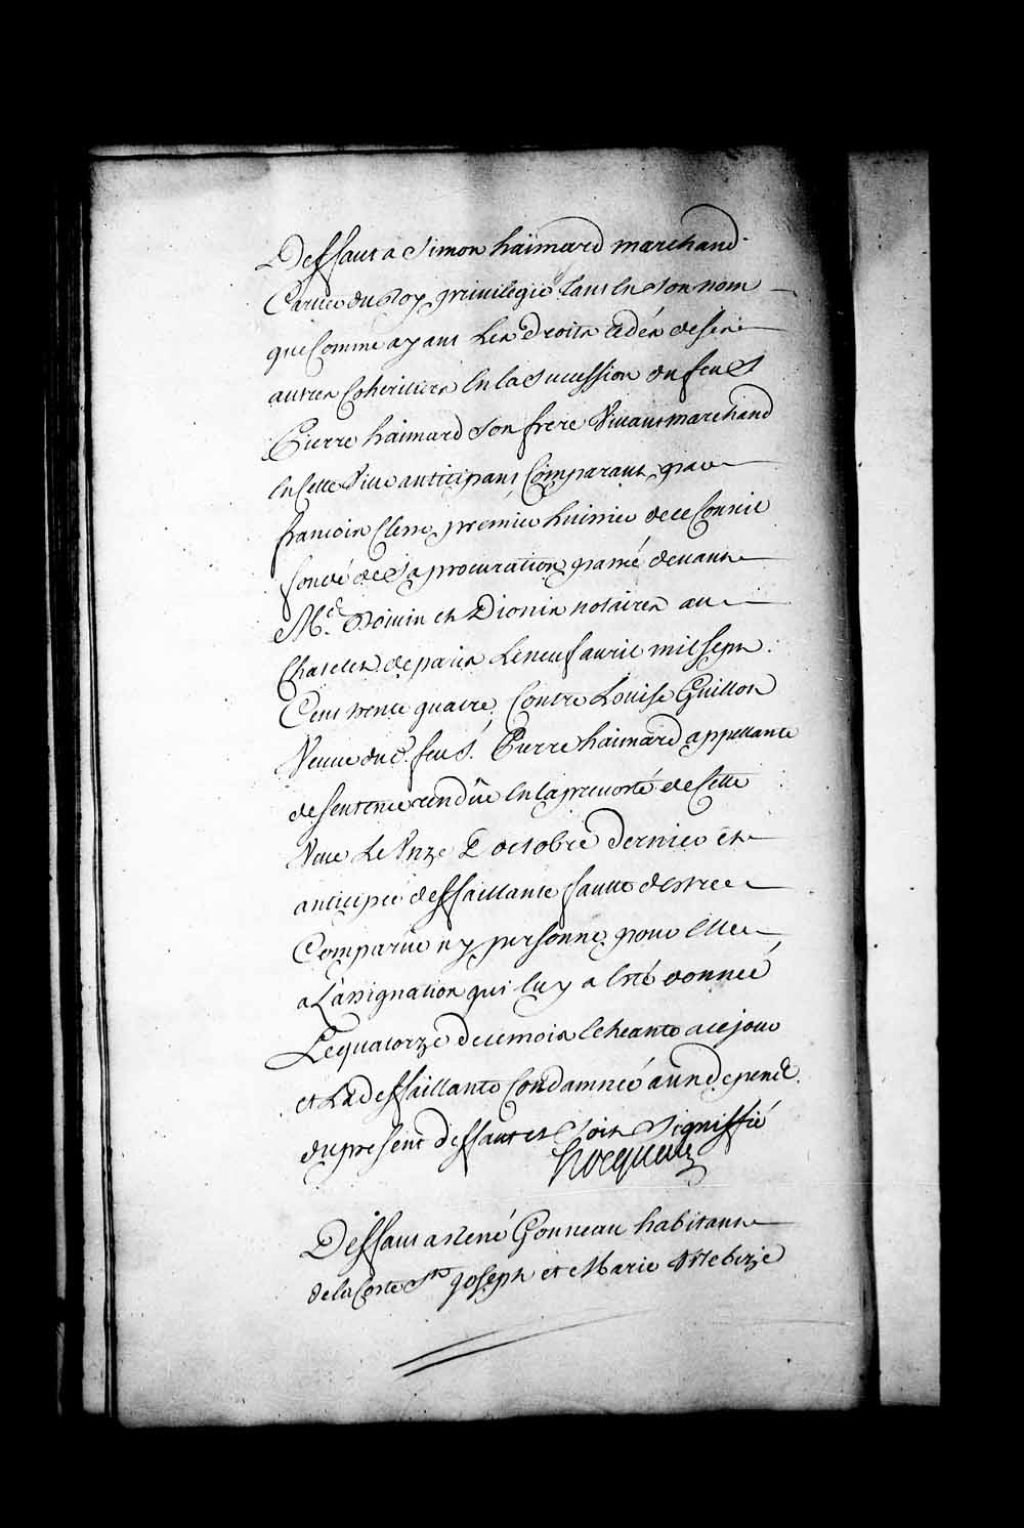 Deffaut a Simon haimard marchand
Cariier du Roy privilegié tant en son nom
que Comme ayant Les droits cédés de ses
autres Coheritiers En la Sucession du feu S
Pierre haimard son frere Vivant marchand
En Cette Ville anticipant Comparant par
francois Clesse premier huissier de ce Conseil
fondé de Sa procuration passée devant
Mes. Boivin et Dionis notaires au
Chatelet de paris Le neuf avril mil sept
Cent trente quatre, Contre Louise Guillot
Veuve dud. feu S. Pierre haimard appellante
de sentence rendüe En la prevosté de Cette
Ville Le Onze octobre dernier et
anticipée deffaillante faute destre
Comparüe ny personne pour Elle
a L'assignation qui luy a Esté donnée
Le quatorze de ce mois Echeante a ce jour
et La deffaillante Condamnée aux depens
du present deffaut et Soit Signiffié
hocquart
Deffaut a René Gonneau habitant
de la Coste St. Joseph et Marie